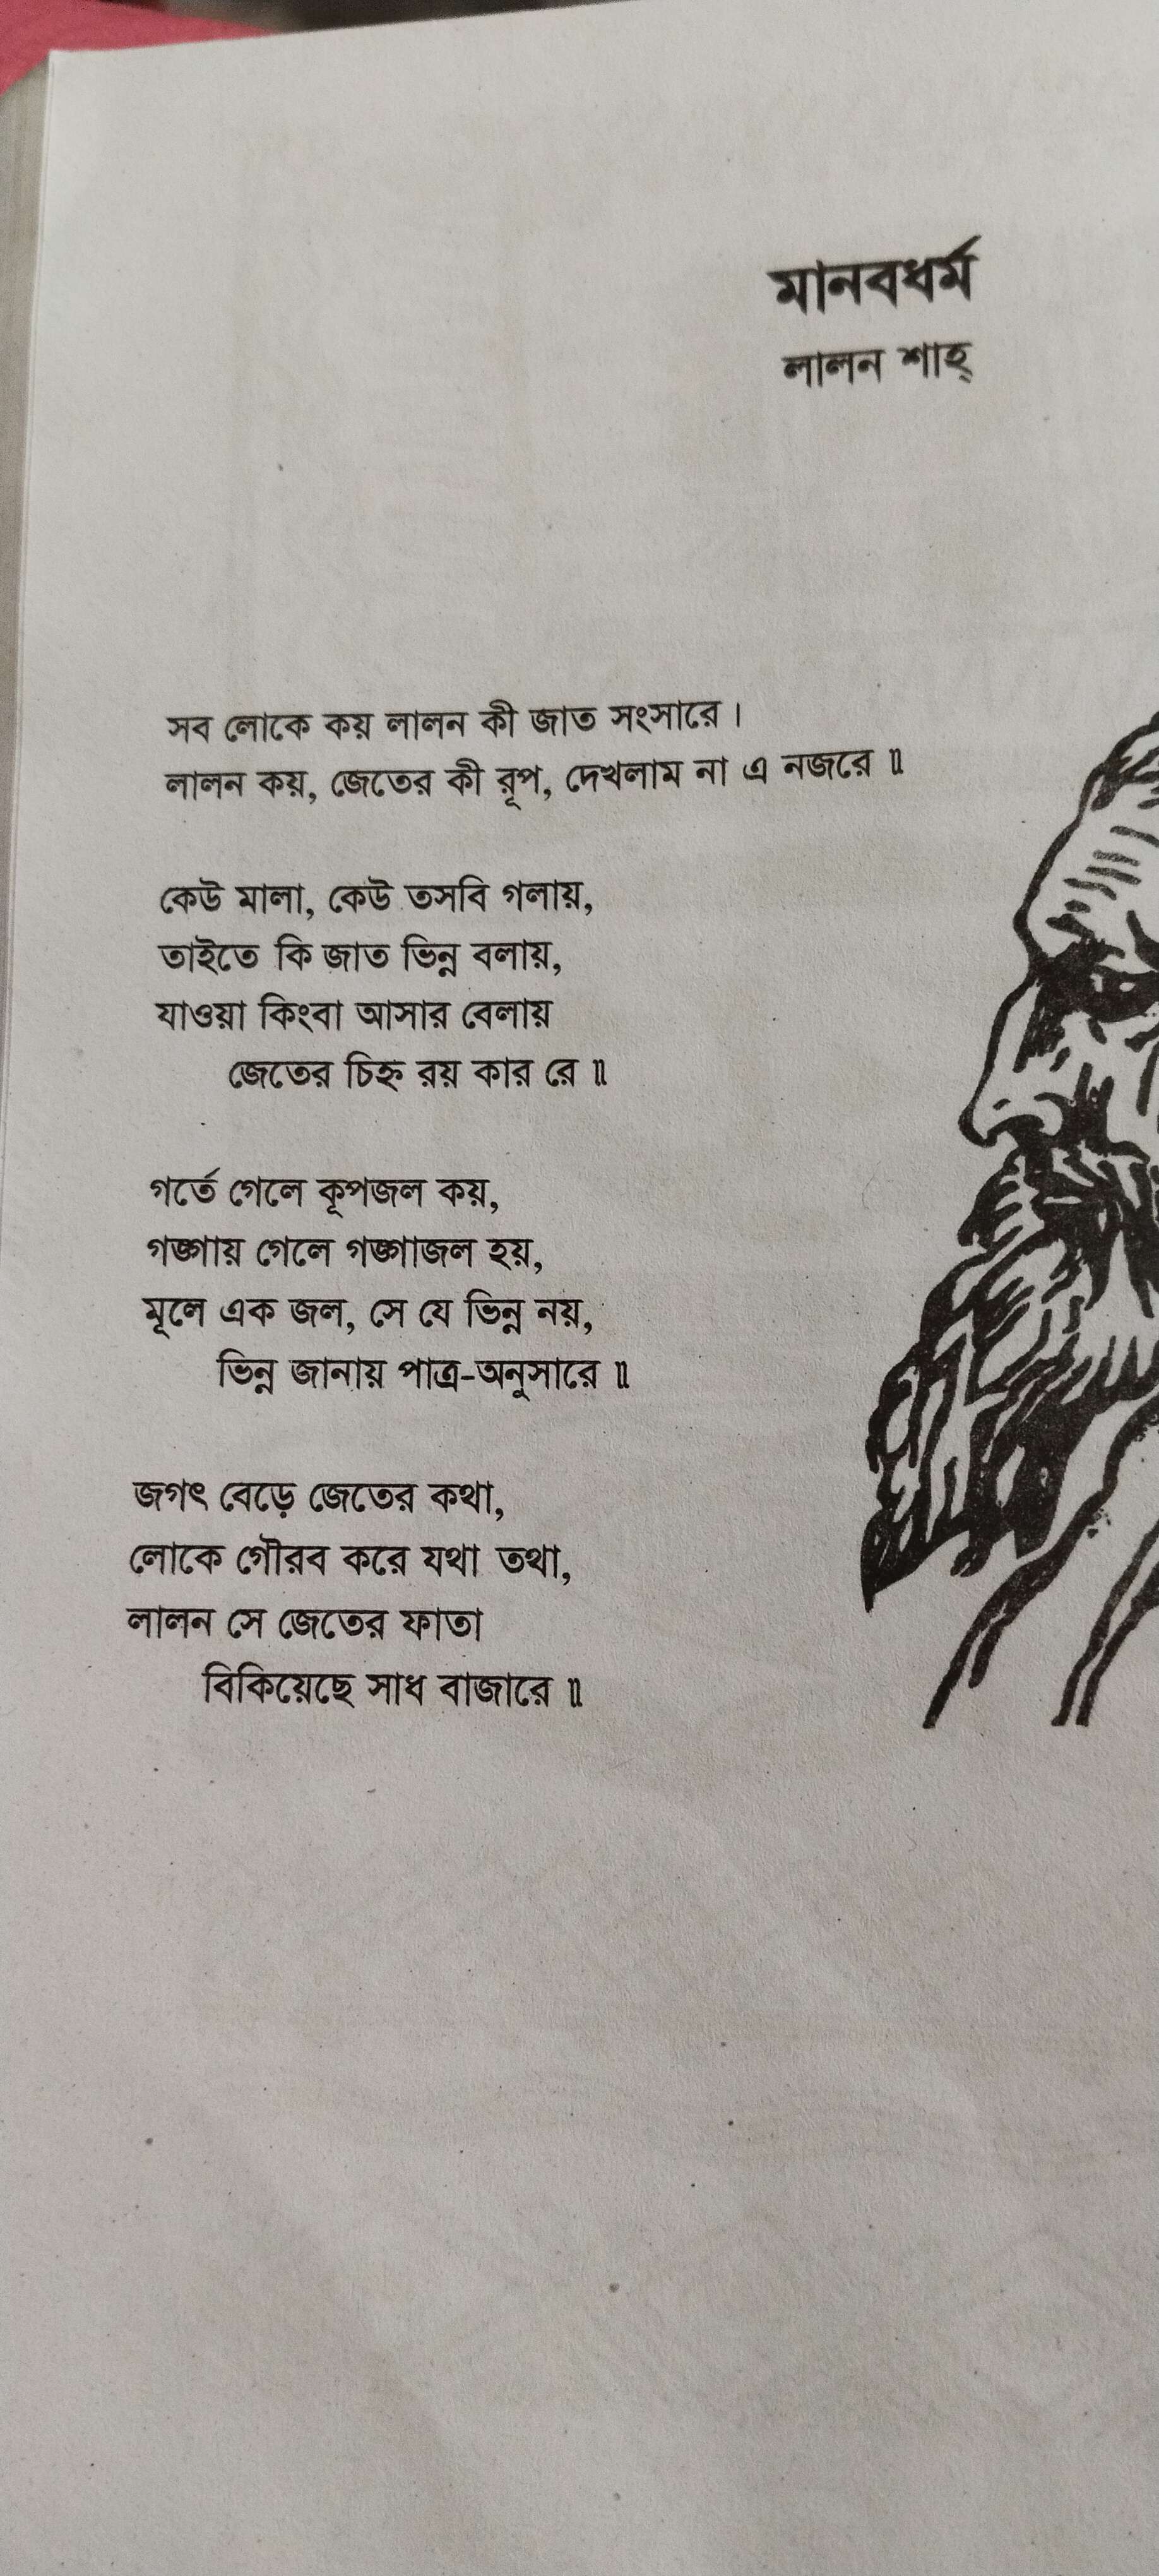 মানবধর্ম
লালন শাহ্
সব লোকে কয় লালন কী জাত সংসারে।
লালন কয়, জেতের কী রূপ, দেখলাম না এ নজরে॥
কেউ মালা, কেউ তসবি গলায়,
তাইতে কি জাত ভিন্ন বলায়,
যাওয়া কিংবা আসার বেলায়
জেতের চিহ্ন রয় কার রে॥
গর্তে গেলে কূপজল কয়,
গঙ্গায় গেলে গঙ্গাজল হয়,
মূলে এক জল, সে যে ভিন্ন নয়,
ভিন্ন জানায় পাত্র-অনুসারে॥
জগৎ বেড়ে জেতের কথা,
লোকে গৌরব করে যথা তথা,
লালন সে জেতের ফাতা
বিকিয়েছে সাধ বাজারে॥